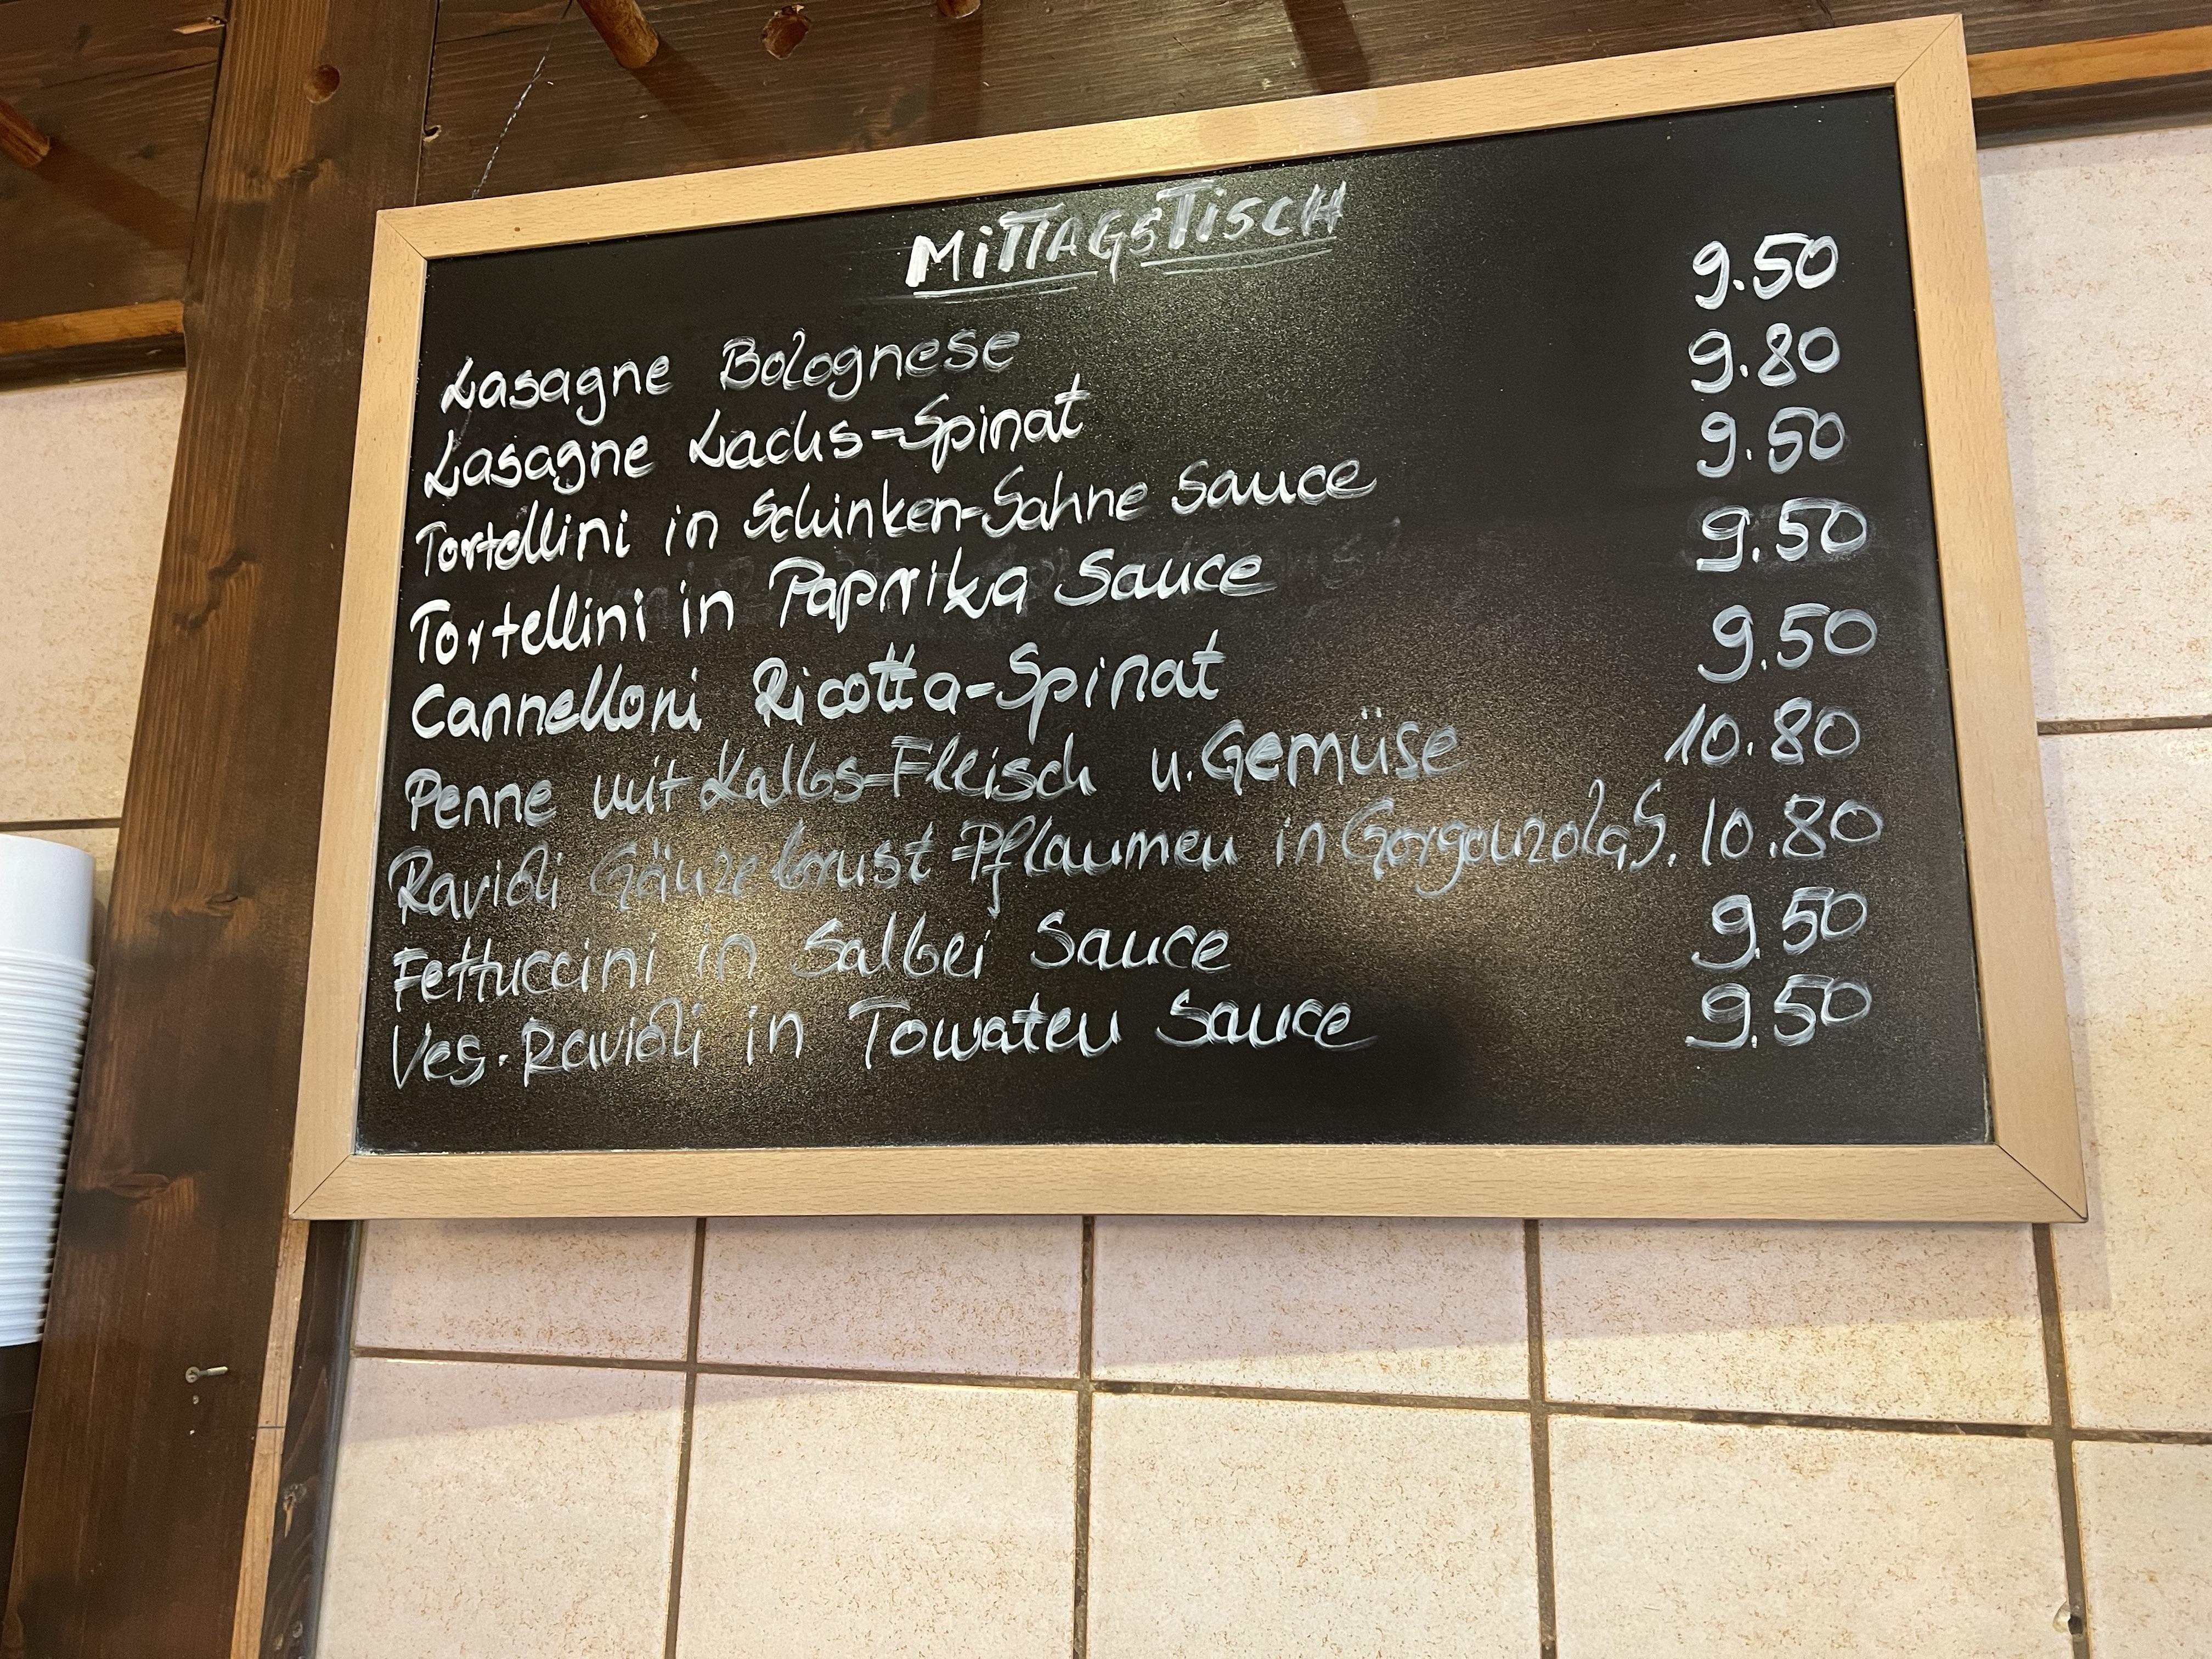 MiTTAGSTiSCH
Lasagne Bolognese 9.50
Lasagne Lachs-Spinat 9.80
Tortellini in Schinken-Sahne Sauce 9.50
Tortellini in Paprika Sauce 9.50
Cannelloni Ricotta-Spinat 9.50
Penne mit Kalbs-Fleisch u. Gemüse 10.80
Ravioli Gänzebrust-Pflaumen in Gorgonzola S. 10.80
Fettuccini in Salbei Sauce 9.50
Veg. Ravioli in Tomaten Sauce 9.50